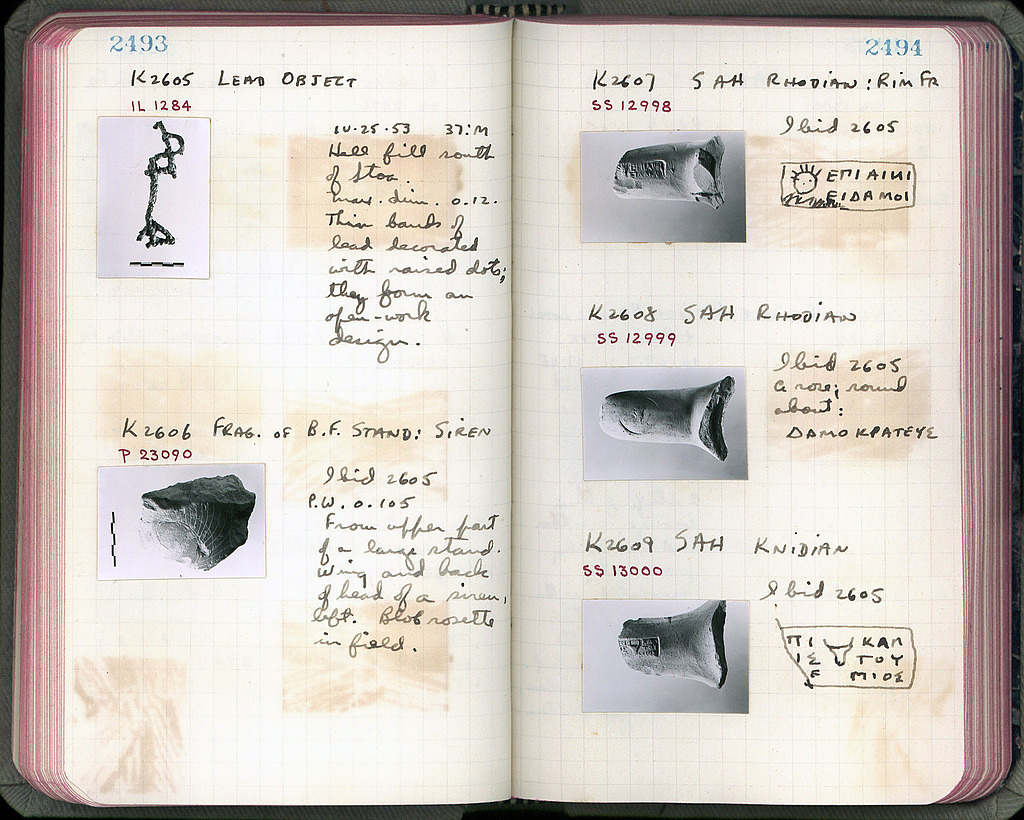 2493
K2605 LEAD OBJECT
IL 1284
IV·25·53 37:M
Hell. fill south
of Stoa.
Max. dim. 0.12.
Thin bands of
lead decorated
with raised dots;
they form an
open-work
design.
K2606 FRAG. OF B.F. STAND: SIREN
P 23090
Ibid 2605
P.W. 0.105
From upper part
of a large stand.
Wing and back
of head of a siren,
left. Blob rosette
in field.
2494
K2607 SAH RHODIAN: RIM FR
SS 12998
Ibid 2605
ΕΠΙ ΑΙΝΙ
ΕΙΔΑΜΟΙ
K2608 SAH RHODIAN
SS 12999
Ibid 2605
a rose; round
about:
ΔΑΜΟΚΡΑΤΕΥΣ
K2609 SAH KNIDIAN
SS 13000
Ibid 2605
ΠΙ ΚΑΛ
ΙΣ ΤΟΥ
Ε ΜΙΟΣ